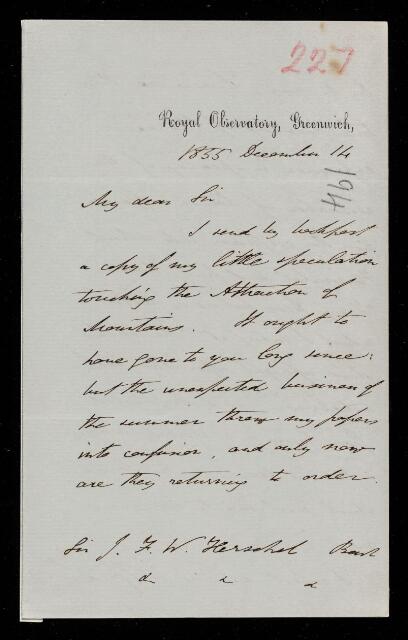 227
Royal Observatory, Greenwich,
1855 December 14
194
My dear Sir
I send by bookpost
a copy of my little speculation
touching the Attraction of
Mountains. It ought to
have gone to you long since:
but the unexpected business of
the summer threw my papers
into confusion, and only now
are they returning to order.
Sir J. F. W. Herschel Bart